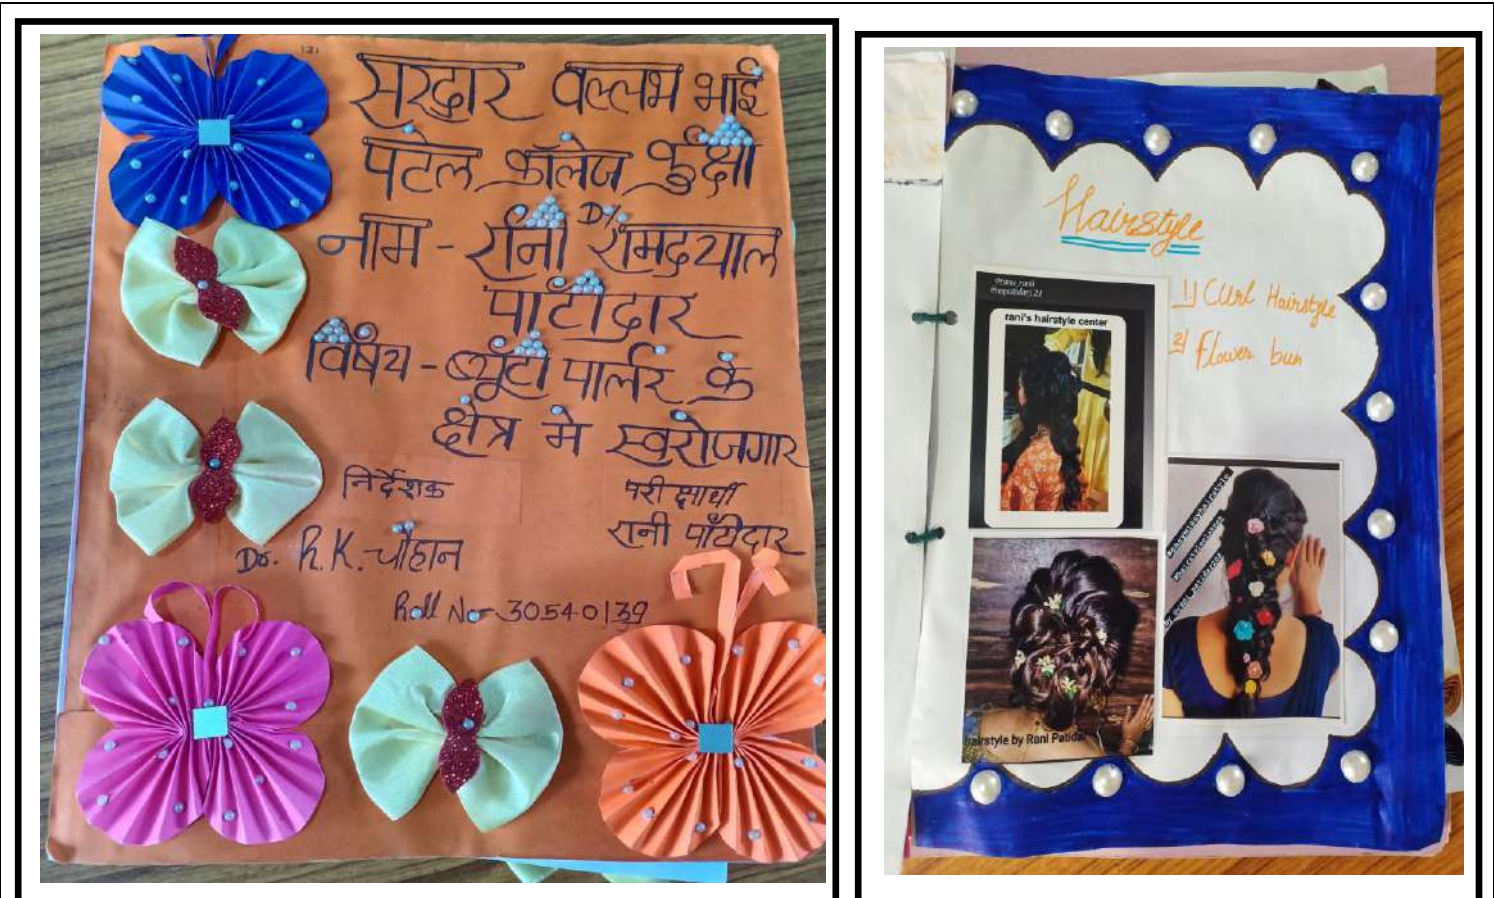 सरदार वल्लभ भाई
पटेल कॉलेज कुक्षी
नाम - रानी D/ रामदयाल
पाटीदार
विषय - ब्यूटी पार्लर के
क्षेत्र मे स्वरोजगार
निर्देशक
Dr. R.K. चौहान
परीक्षार्थी
रानी पाटीदार
Roll No- 30540139
Hairstyle
1) Curl Hairstyle
2) Flower bun
rani's hairstyle center
hairstyle by Rani Patidar